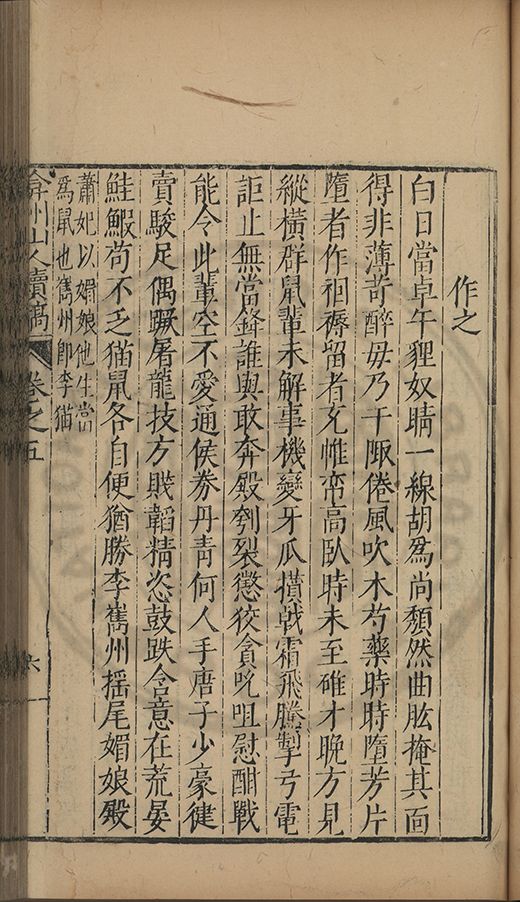 作之
白日當卓午貍奴睛一線胡爲尚頹然曲肱掩其面
得非薄荷醉毋乃干陬倦風吹木芍藥時時墮芳片
墮者作裀褥留者充帷帟高臥時未至碓才晚方見
縱橫群鼠輩未解事機變牙爪橫戟霜飛騰掣弓電
詎止無當鋒誰與敢奔殿刳裂懲狡貪吮咀慰酣戰
能令此輩空不愛通侯券丹青何人手唐子少豪健
賣駿足偶蹶屠龍技方賤韜精恣鼓跌含意在荒晏
鮭鰕苟不乏猫鼠各自便猶勝李巂州揺尾媚娘殿
蕭妃以媚娘他生當
爲鼠也巂州卽李猫
弇州山人續稿 卷之五 六